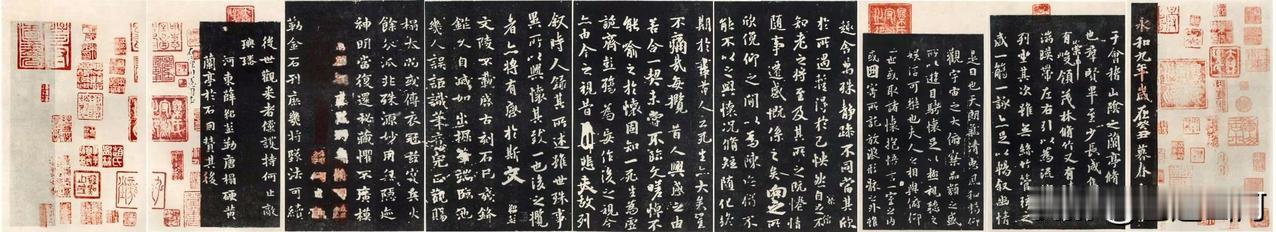 永和九年歲在癸丑暮春
于會稽山陰之蘭亭脩
也羣賢畢至少長咸集
有峻領茂林脩竹又有清
湍暎帶左右引以為流
列坐其次雖無絲竹管弦之
盛一觴一詠亦足以暢叙幽情
是日也天朗氣清惠風和暢仰
觀宇宙之大俯察品類之盛
所以遊目騁懷足以極視聽之
娛信可樂也夫人之相與俯仰
一世或取諸懷抱悟言一室之內
或因寄所託放浪形骸之外雖
趣舍萬殊靜躁不同當其欣
於所遇暫得於己快然自足不
知老之將至及其所之既惓情
隨事遷感慨係之矣向之所
欣俛仰之閒以為陳迹猶不
能不以之興懷況脩短隨化終
期於盡古人云死生亦大矣豈
不痛哉每攬昔人興感之由
若合一契未嘗不臨文嗟悼不
能喻之於懷固知一死生為虛
誕齊彭殤為妄作後之視今
亦由今之視昔悲夫故列
叙時人錄其所述雖世殊事
異所以興懷其致一也後之攬
者亦將有感於斯文
文陵不載古刻石已殘鋒
鋩久自滅如出臨池
幾人誤識筆完正觀賜
榻或傳衣冠兵火
餘派非殊源妙用無迹
神明當復還秘藏懼不廣模
勒金石刊庶幾將繇法可續
後世觀來者儻護持何止敵
璵璠
河東薛紹彭勒唐榻硬黃
蘭亭於石用贊其後